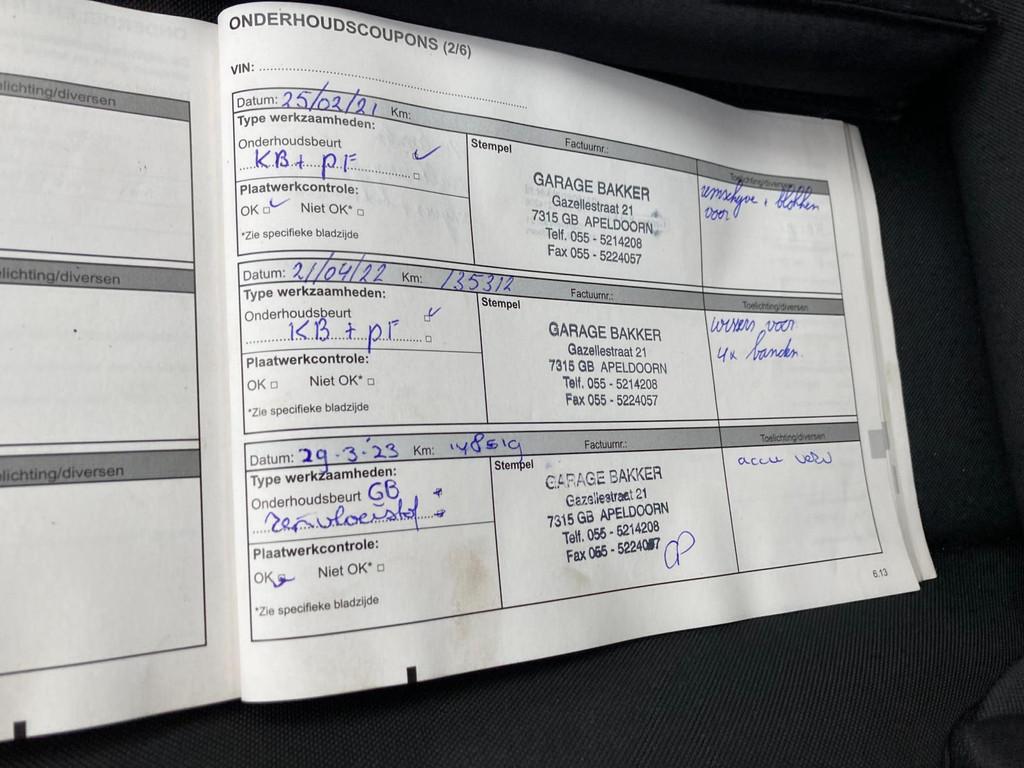 ONDERHOUDSCOUPONS (2/6)
VIN:
Datum: 25/02/21 Km:
Type werkzaamheden:
Onderhoudsbeurt
KB + PF
Plaatwerkcontrole:
OK Niet OK*
*Zie specifieke bladzijde
Stempel Factuurnr.:
GARAGE BAKKER
Gazellestraat 21
7315 GB APELDOORN
Telf. 055 - 5214208
Fax 055 - 5224057
Toelichting/diversen
remschijve + blokken
voor
Datum: 21/04/22 Km: 135312
Type werkzaamheden:
Onderhoudsbeurt
KB + PF
Plaatwerkcontrole:
OK Niet OK*
*Zie specifieke bladzijde
Stempel Factuurnr.:
GARAGE BAKKER
Gazellestraat 21
7315 GB APELDOORN
Telf. 055 - 5214208
Fax 055 - 5224057
Toelichting/diversen
wissers voor
4x banden.
Datum: 29-3-'23 Km: 148519
Type werkzaamheden:
Onderhoudsbeurt GB
remvloeistof
Plaatwerkcontrole:
OK Niet OK*
*Zie specifieke bladzijde
Stempel Factuurnr.:
GARAGE BAKKER
Gazellestraat 21
7315 GB APELDOORN
Telf. 055 - 5214208
Fax 055 - 5224057
Toelichting/diversen
accu verv
6.13
elichting/diversen
elichting/diversen
elichting/diversen